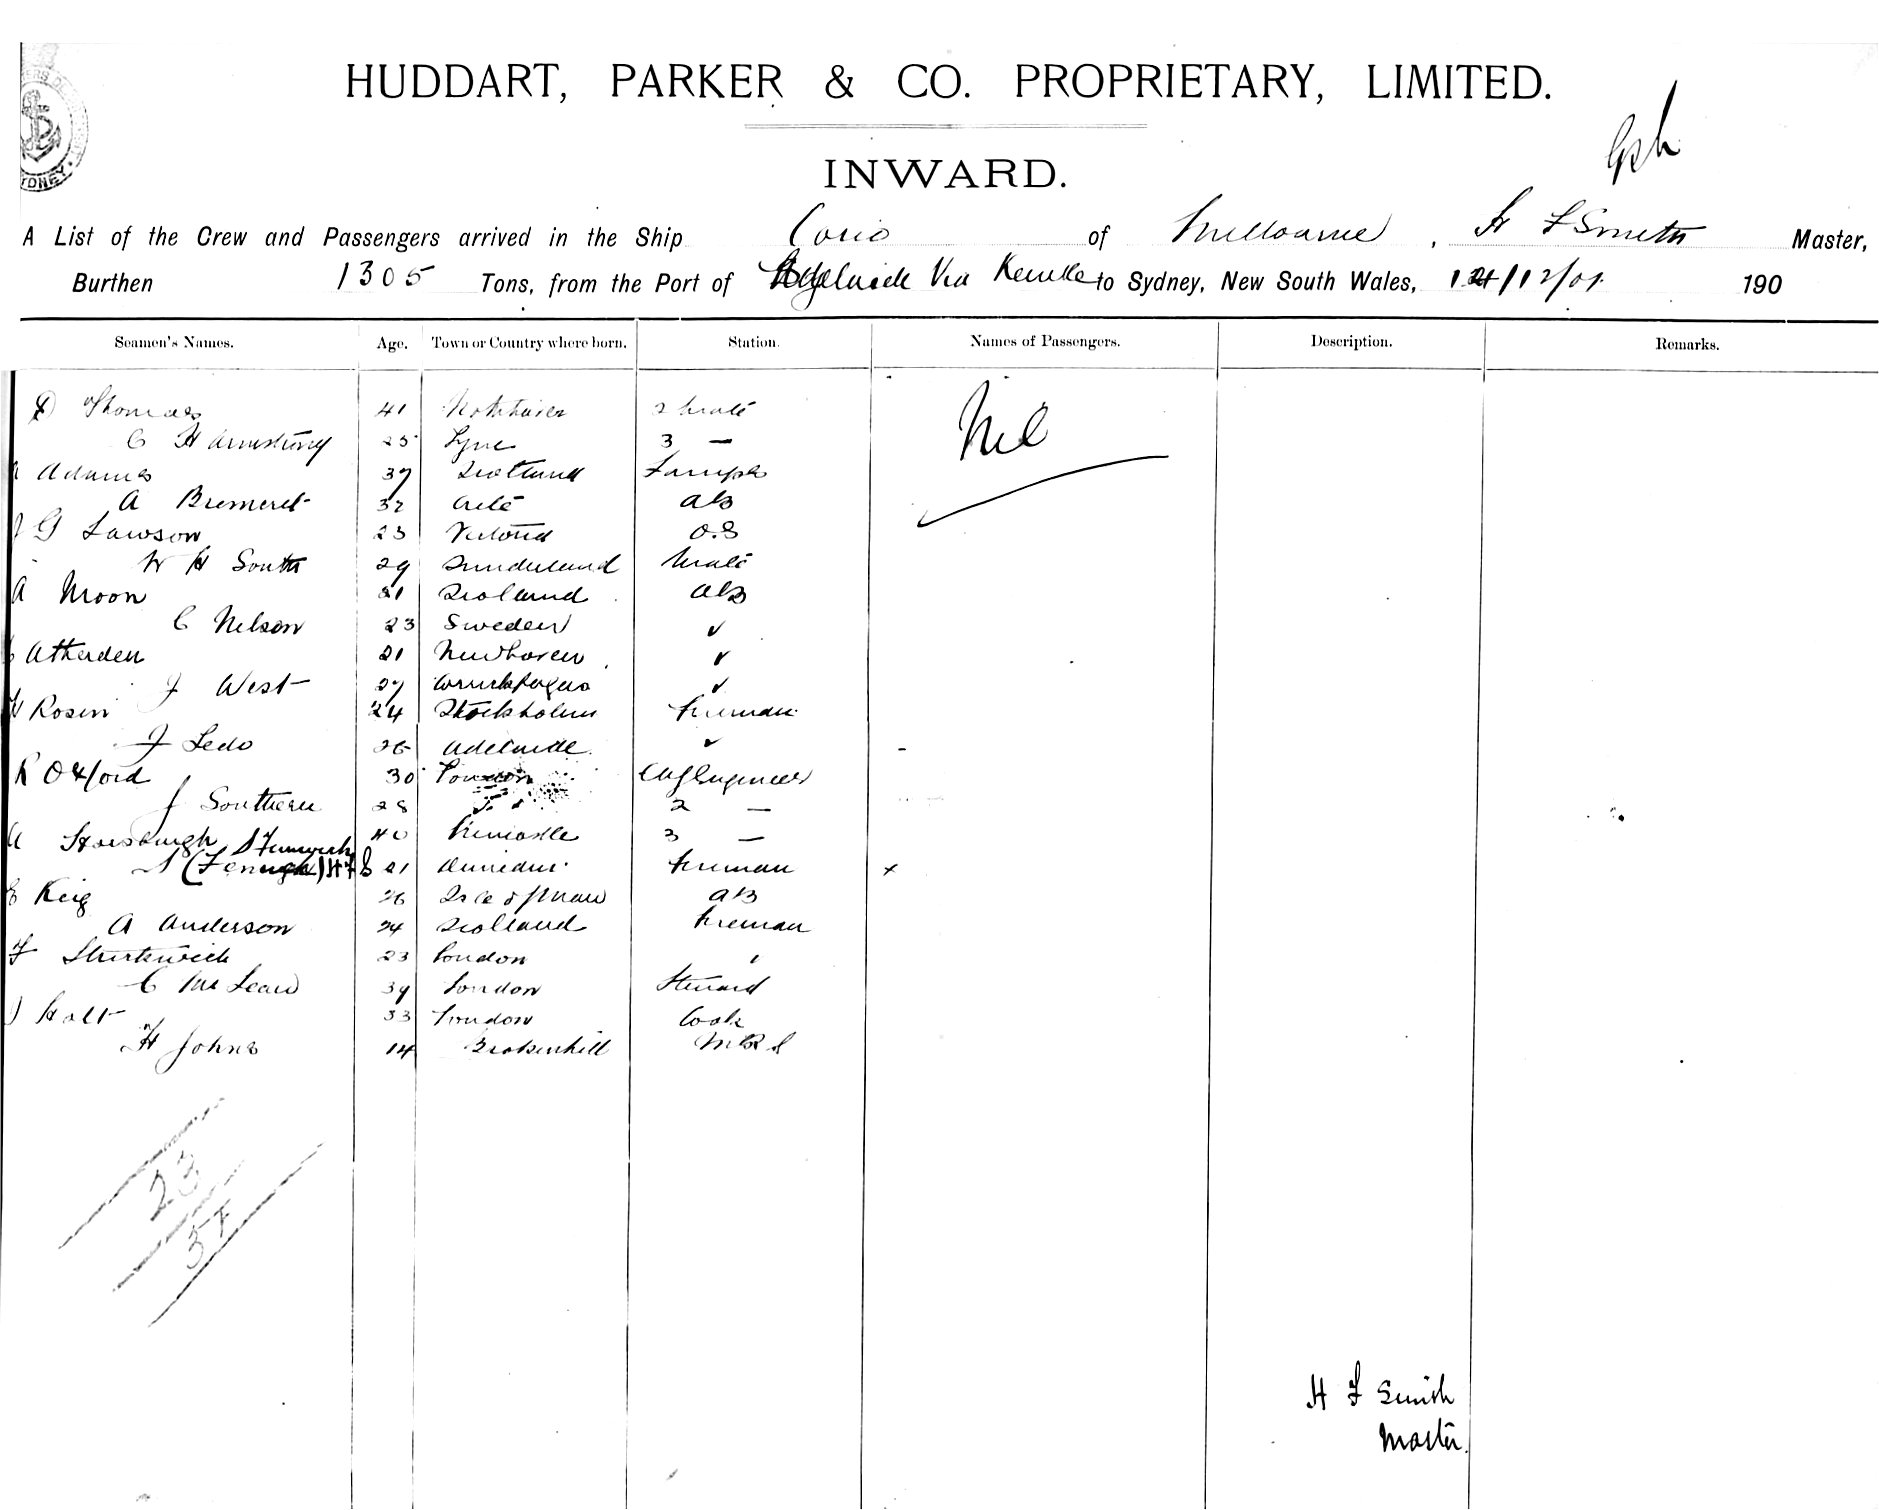 HUDDART, PARKER & CO. PROPRIETARY, LIMITED.
INWARD.
A List of the Crew and Passengers arrived in the Ship Corio of Melbourne, H F Smith Master,
Burthen 1305 Tons, from the Port of Adelaide Via to Sydney, New South Wales, 12/01 190
Seamen's Names. Age. Town or Country where born. Station. Names of Passengers. Description. Remarks.
D Thomas 41 2 Mate Nil
C H Armstrong 25 3 —
Adams 37 Scotland Lamps
A Bremert 32 AB
G Lawson 23 Victoria O.S
W H South 29 Sunderland Mate
A Moon 21 Scotland AB
C Nelson 23 Sweden ✓
Atherden 21 Newhaven ✓
J West 27 ✓
Rosen 24 Stockholm Fireman
J Ledo 26 Adelaide ✓
R Oxford 30 London Chf Engineer
J Southern 28 " " 2 —
Horsburgh 40 Newcastle 3 —
S Fenwick
21 Dunedin Fireman x
Keig 26 Isle of Man AB
A Anderson 24 Scotland Fireman
F 23 London
C McLean 39 London Steward
Holt 33 London Cook
H Johns 14 Brokenhill
23
H F Smith
Master.